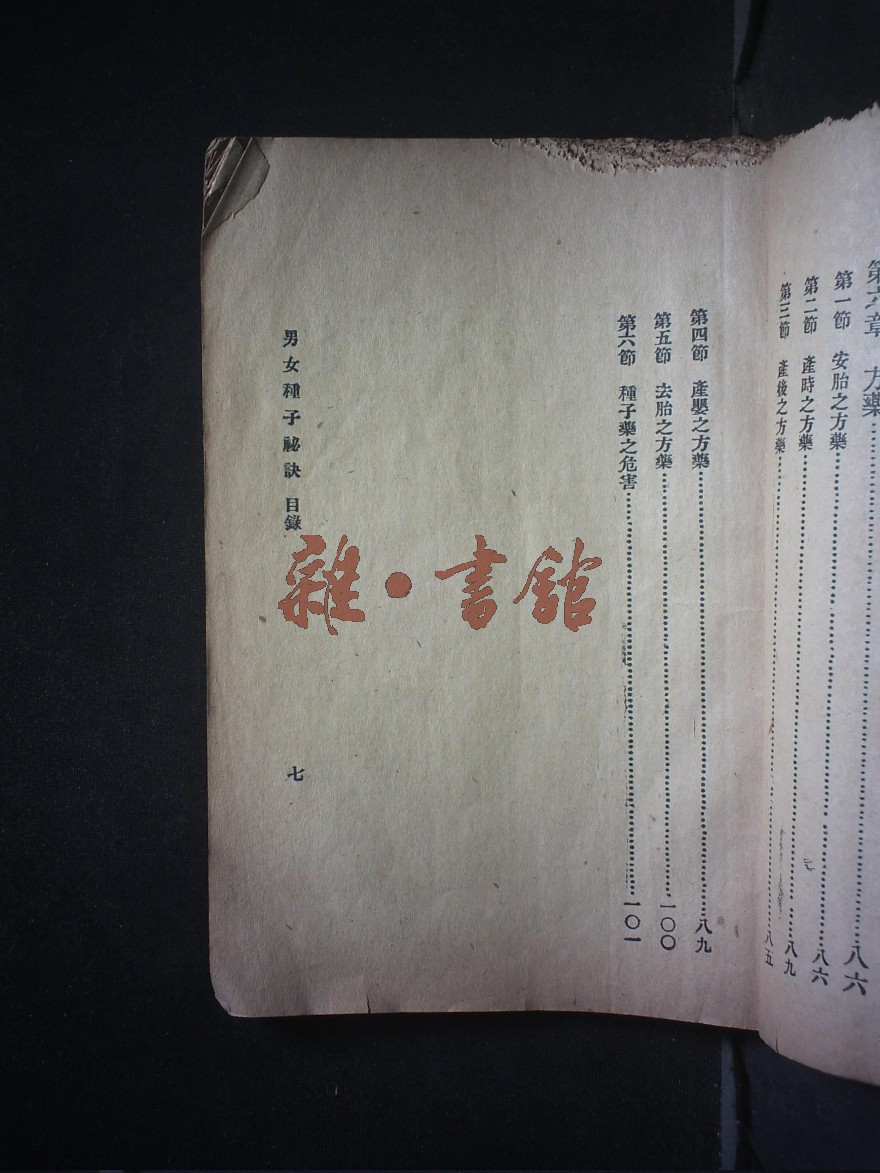 第六章 方藥……八六
第一節 安胎之方藥……八六
第二節 產時之方藥……八九
第三節 產後之方藥……八五
第四節 產嬰之方藥……八九
第五節 去胎之方藥……一〇〇
第六節 種子藥之危害……一〇一
男女種子祕訣 目錄
七
雜·書館